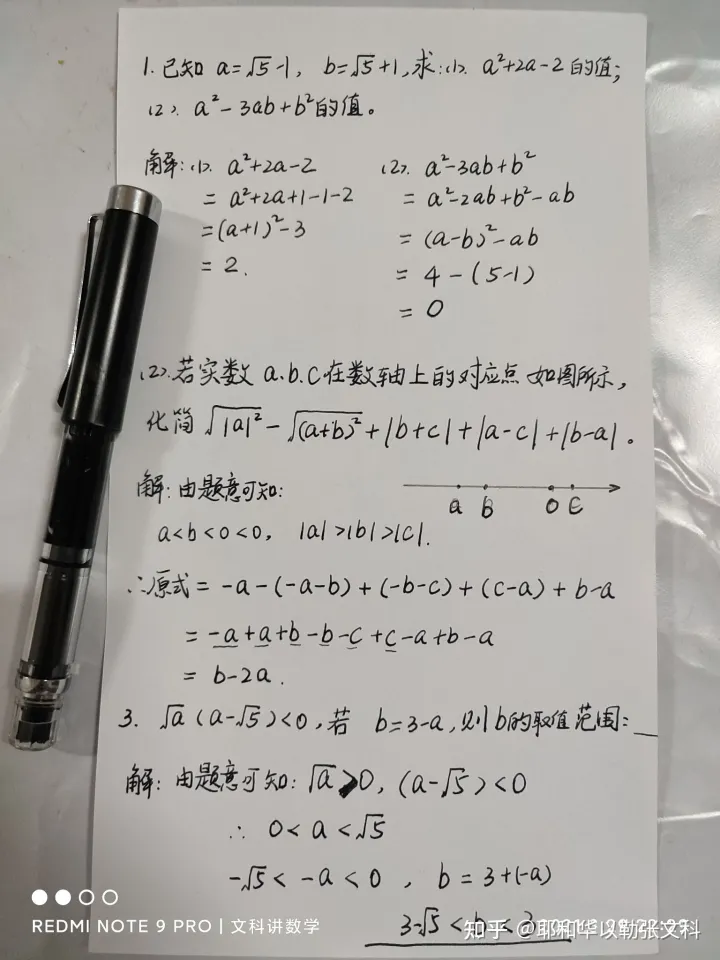 1. 已知 a=√5-1, b=√5+1, 求: (1). a²+2a-2 的值;
(2). a²-3ab+b² 的值。
解: (1). a²+2a-2
= a²+2a+1-1-2
=(a+1)²-3
= 2.
(2). a²-3ab+b²
= a²-2ab+b²-ab
= (a-b)²-ab
= 4-(5-1)
= 0
(2). 若实数 a.b.c 在数轴上的对应点如图所示,
化简 √|a|² - √(a+b)² + |b+c| + |a-c| + |b-a| 。
解: 由题意可知:
a b o c
a<b<0<0, |a|>|b|>|c|.
∴原式 = -a-(-a-b)+(-b-c)+(c-a)+b-a
= -a+a+b-b-c+c-a+b-a
= b-2a.
3. √a (a-√5)<0, 若 b=3-a, 则b的取值范围: __
解: 由题意可知: √a>0, (a-√5)<0
∴ 0<a<√5
-√5<-a<0, b=3+(-a)
3-√5<b<3
REDMI NOTE 9 PRO | 文科讲数学
知乎 @耶和华以勒张文科